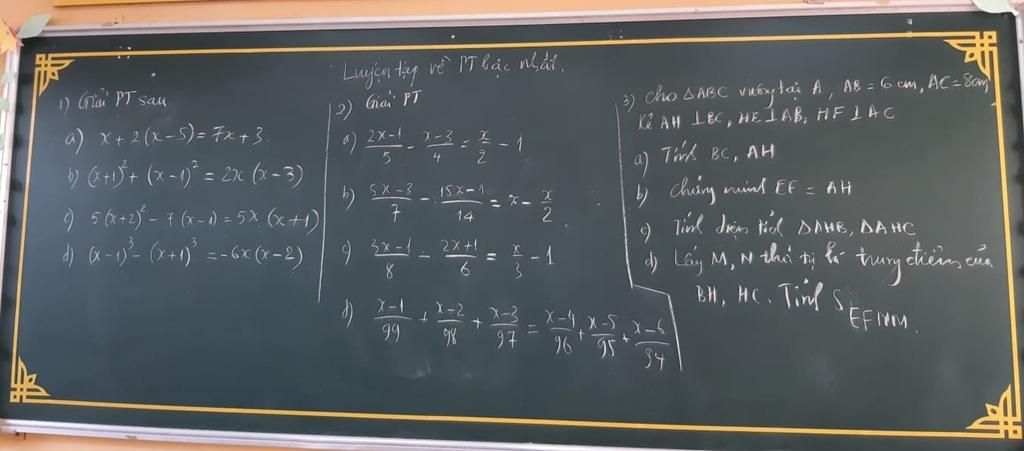 Luyện tập về PT bậc nhất.
1) Giải PT sau
a) x + 2(x-5) = 7x + 3.
b) (x+1)² + (x-1)² = 2x(x-3)
c) 5(x+2)² - 7(x-1) = 5x(x+1)
d) (x-1)³ - (x+1)³ = -6x(x-2)
2) Giải PT
a) (2x-1)/5 - (x-3)/4 = x/2 - 1
b) (5x-3)/7 - (15x-1)/14 = x - x/2
c) (3x-1)/8 - (2x+1)/6 = x/3 - 1
d) (x-1)/99 + (x-2)/98 + (x-3)/97 = (x-4)/96 + (x-5)/95 + (x-6)/94
3) Cho ΔABC vuông tại A, AB = 6 cm, AC = 8cm
Kẻ AH ⊥ BC, HE ⊥ AB, HF ⊥ AC
a) Tính BC, AH
b) Chứng minh EF = AH
c) Tính diện tích ΔAHB, ΔAHC
d) Lấy M, N thứ tự là trung điểm của
BH, HC. Tính S EFNM.